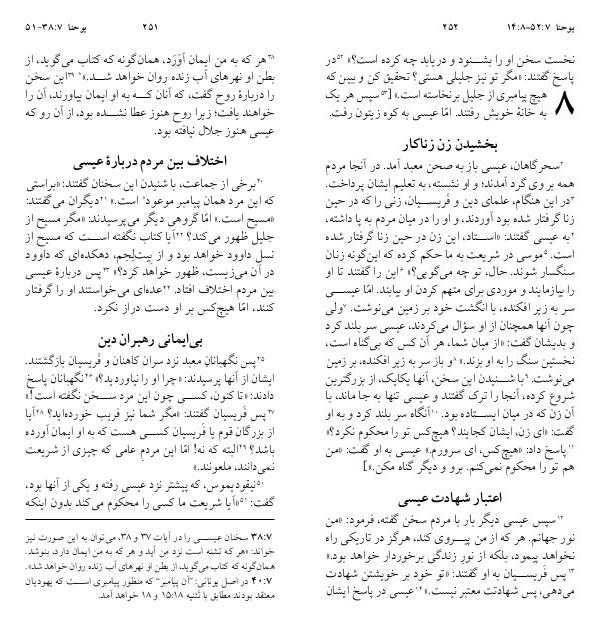 یوحنا ۳۸:۷-۵۱
۲۵۱
۳۸هر که به من ایمان آوَرَد، همان‌گونه که کتاب می‌گوید، از
بطن او نهرهای آب زنده روان خواهد شد.»* ۳۹این سخن
را دربارۀ روح گفت، که آنان کـه به او ایمان بیاورند، آن را
خواهند یافت؛ زیرا روح هنوز عطا نشـده بود، از آن رو که
عیسی هنوز جلال نیافته بود.
اختلاف بین مردم دربارۀ عیسی
۴۰برخی از جماعت، با شنیدن این سخنان گفتند: «براستی
که این مرد همان پیامبر موعود* است.» ۴۱دیگران می‌گفتند:
«مسیح است.» امّا گروهی دیگر می‌پرسیدند: «مگر مسیح از
جلیل ظهور می‌کند؟ ۴۲آیا کتاب نگفته است که مسیح از
نسل داوود خواهد بود و از بِیت‌لِحِم، دهکده‌ای که داوود
در آن می‌زیست، ظهور خواهد کرد؟» ۴۳پس دربارۀ عیسی
بین مردم اختلاف افتاد. ۴۴عده‌ای می‌خواستند او را گرفتار
کنند، امّا هیچ‌کس بر او دست دراز نکرد.
بی‌ایمانی رهبران دین
۴۵پس نگهبانانِ معبد نزد سران کاهنان و فَریسیان بازگشتند.
ایشان از آنها پرسیدند: «چرا او را نیاوردید؟» ۴۶نگهبانان پاسخ
دادند: «تا کنون، کسـی چون این مرد سـخن نگفته است!»
۴۷پس فَریسیان گفتند: «مگر شما نیز فریب خورده‌اید؟ ۴۸آیا
از بزرگان قوم یا فَریسیان کسـی هست که به او ایمان آورده
باشد؟ ۴۹البته که نه! امّا این مردم عامی که چیزی از شریعت
نمی‌دانند، ملعونند.»
۵۰نیقودیموس، که پیشتر نزد عیسی رفته و یکی از آنها بود،
گفت: ۵۱«آیا شریعت ما کسی را محکوم می‌کند بدون اینکه
۳۸:۷ سخنان عیسـی را در آیات ۳۷ و ۳۸، می‌توان به این صورت نیز
خواند: «هر که تشنه است نزد من آید و هر که به من ایمان دارد، بنوشد.
همان‌گونه که کتاب می‌گوید، از بطن او نهرهای آب زنده روان خواهد شد».
۴۰:۷ در اصل یونانی: «آن پیامبر» که منظور پیامبری اسـت که یهودیان
معتقد بودند مطابق با تثنیه ۱۵:۱۸ و ۱۸ خواهد آمد.
یوحنا ۵۲:۷-۱۴:۸
۲۵۲
نخست سخن او را بشـنود و دریابد چه کرده است؟» ۵۲در
پاسخ گفتند: «مگر تو نیز جلیلی هستی؟ تحقیق کن و ببین که
هیچ پیامبری از جلیل برنخاسته است.» [۵۳سپس هر یک
۸
به خانۀ خویش رفتند. امّا عیسی به کوه زیتون رفت.
بخشیدن زن زناکار
۲سحرگاهان، عیسی باز به صحن معبد آمد. در آنجا مردم
همه بر وی گرد آمدند؛ و او نشسته، به تعلیم ایشان پرداخت.
۳در این هنگام، علمای دین و فَریسـیان، زنی را که در حین
زنا گرفتار شده بود آوردند، و او را در میان مردم به پا داشته،
۴به عیسی گفتند: «استاد، این زن در حین زنا گرفتار شده
است. ۵موسی در شریعت به ما حکم کرده که این‌گونه زنان
سنگسار شوند. حال، تو چه می‌گویی؟» ۶این را گفتند تا او
را بیازمایند و موردی برای متهم کردن او بیابند. امّا عیسـی
سر به زیر افکنده، با انگشت خود بر زمین می‌نوشت. ۷ولی
چون آنها همچنان از او سؤال می‌کردند، عیسی سر بلند کرد
و بدیشان گفت: «از میان شما، هر آن کس که بی‌گناه است،
نخستین سنگ را به او بزند.» ۸و باز سر به زیر افکنده، بر زمین
می‌نوشت. ۹با شـنیدن این سخن، آنها یکایک، از بزرگترین
شروع کرده، آنجا را ترک گفتند و عیسی تنها به جا ماند، با
آن زن که در میان ایسـتاده بود. ۱۰آنگاه سر بلند کرد و به او
گفت: «ای زن، ایشان کجایند؟ هیچ‌کس تو را محکوم نکرد؟»
۱۱پاسخ داد: «هیچ‌کس، ای سرورم.» عیسی به او گفت: «من
هم تو را محکوم نمی‌کنم. برو و دیگر گناه مکن.»]
اعتبار شهادت عیسی
۱۲سپس عیسی دیگر بار با مردم سخن گفته، فرمود: «من
نور جهانم. هر که از من پیـروی کند، هرگز در تاریکی راه
نخواهد پیمود، بلکه از نورِ زندگی برخوردار خواهد بود.»
۱۳پس فَریسـیان به او گفتند: «تو خود بر خویشتن شهادت
می‌دهی، پس شهادتت معتبر نیست.» ۱۴عیسی در پاسخ ایشان